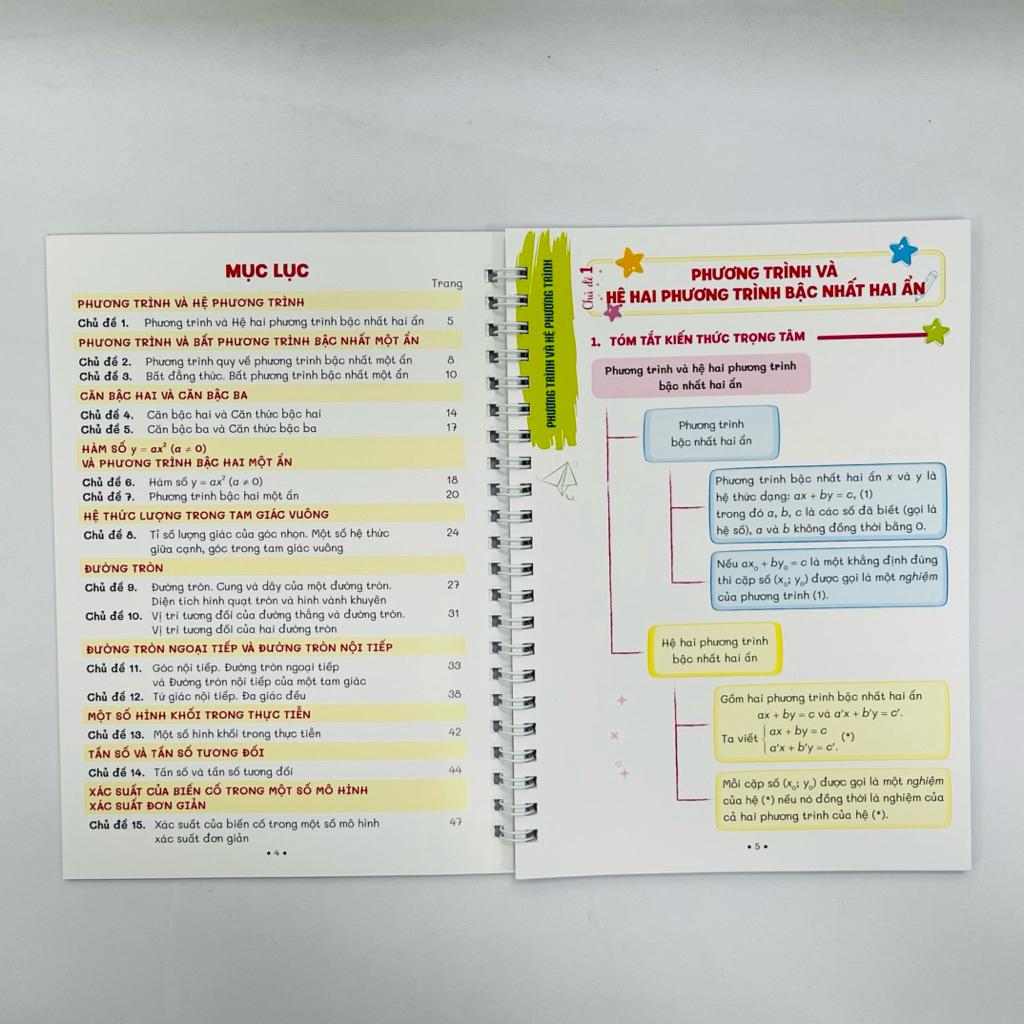 MỤC LỤC
Trang
PHƯƠNG TRÌNH VÀ HỆ PHƯƠNG TRÌNH
Chủ đề 1. Phương trình và Hệ hai phương trình bậc nhất hai ẩn 5
PHƯƠNG TRÌNH VÀ BẤT PHƯƠNG TRÌNH BẬC NHẤT MỘT ẨN
Chủ đề 2. Phương trình quy về phương trình bậc nhất một ẩn 8
Chủ đề 3. Bất đẳng thức. Bất phương trình bậc nhất một ẩn 10
CĂN BẬC HAI VÀ CĂN BẬC BA
Chủ đề 4. Căn bậc hai và Căn thức bậc hai 14
Chủ đề 5. Căn bậc ba và Căn thức bậc ba 17
HÀM SỐ y = ax² (a ≠ 0)
VÀ PHƯƠNG TRÌNH BẬC HAI MỘT ẨN
Chủ đề 6. Hàm số y = ax² (a ≠ 0) 18
Chủ đề 7. Phương trình bậc hai một ẩn 20
HỆ THỨC LƯỢNG TRONG TAM GIÁC VUÔNG
Chủ đề 8. Tỉ số lượng giác của góc nhọn. Một số hệ thức 24
giữa cạnh, góc trong tam giác vuông
ĐƯỜNG TRÒN
Chủ đề 9. Đường tròn. Cung và dây của một đường tròn. 27
Diện tích hình quạt tròn và hình vành khuyên
Chủ đề 10. Vị trí tương đối của đường thẳng và đường tròn. 31
Vị trí tương đối của hai đường tròn
ĐƯỜNG TRÒN NGOẠI TIẾP VÀ ĐƯỜNG TRÒN NỘI TIẾP
Chủ đề 11. Góc nội tiếp. Đường tròn ngoại tiếp 33
và Đường tròn nội tiếp của một tam giác
Chủ đề 12. Tứ giác nội tiếp. Đa giác đều 38
MỘT SỐ HÌNH KHỐI TRONG THỰC TIỄN
Chủ đề 13. Một số hình khối trong thực tiễn 42
TẦN SỐ VÀ TẦN SỐ TƯƠNG ĐỐI
Chủ đề 14. Tần số và tần số tương đối 44
XÁC SUẤT CỦA BIẾN CỐ TRONG MỘT SỐ MÔ HÌNH
XÁC SUẤT ĐƠN GIẢN
Chủ đề 15. Xác suất của biến cố trong một số mô hình 47
xác suất đơn giản
• 4 •
PHƯƠNG TRÌNH VÀ HỆ PHƯƠNG TRÌNH
Chủ đề 1
PHƯƠNG TRÌNH VÀ
HỆ HAI PHƯƠNG TRÌNH BẬC NHẤT HAI ẨN
1. TÓM TẮT KIẾN THỨC TRỌNG TÂM
Phương trình và hệ hai phương trình
bậc nhất hai ẩn
Phương trình
bậc nhất hai ẩn
Phương trình bậc nhất hai ẩn x và y là
hệ thức dạng: ax + by = c, (1)
trong đó a, b, c là các số đã biết (gọi là
hệ số), a và b không đồng thời bằng 0.
Nếu ax₀ + by₀ = c là một khẳng định đúng
thì cặp số (x₀; y₀) được gọi là một nghiệm
của phương trình (1).
Hệ hai phương trình
bậc nhất hai ẩn
Gồm hai phương trình bậc nhất hai ẩn
ax + by = c và a'x + b'y = c'.
Ta viết { ax + by = c (*)
a'x + b'y = c'.
Mỗi cặp số (x₀; y₀) được gọi là một nghiệm
của hệ (*) nếu nó đồng thời là nghiệm của
cả hai phương trình của hệ (*).
• 5 •